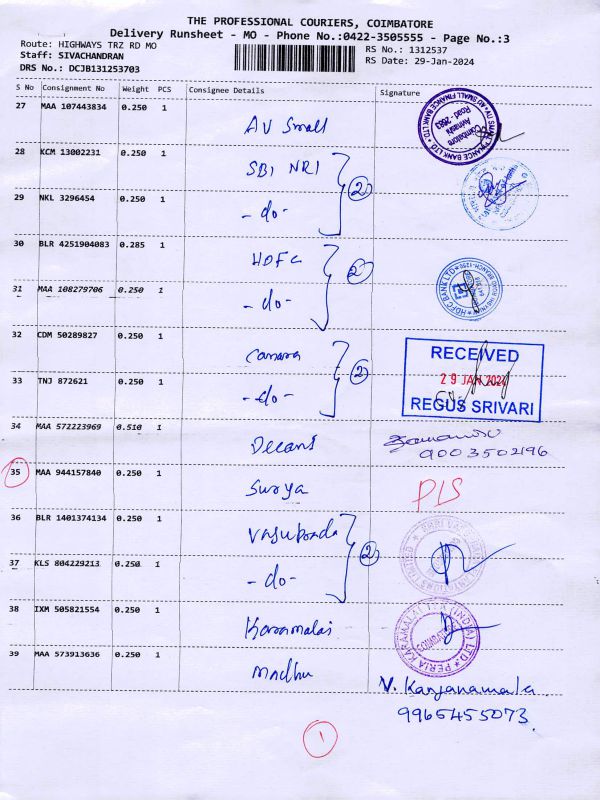 THE PROFESSIONAL COURIERS, COIMBATORE
Delivery Runsheet - MO - Phone No.:0422-3505555 - Page No.:3
Route: HIGHWAYS TRZ RD MO
RS No.: 1312537
Staff: SIVACHANDRAN
RS Date: 29-Jan-2024
DRS No.: DCJB131253703
S No Consignment No Weight PCS Consignee Details Signature
27 MAA 107443834 0.250 1
AV Small
28 KCM 13002231 0.250 1
SBI NRI
2
29 NKL 3296454 0.250 1
-do-
30 BLR 4251904083 0.285 1
HDFC
2
31 MAA 108279706 0.250 1
-do-
HDFC BANK LTD
32 CDM 50289827 0.250 1
Canara
2
33 TNJ 872621 0.250 1
-do-
RECEIVED
29 JAN 2024
REGUS SRIVARI
34 MAA 572223969 0.510 1
Decans
9003502196
35 MAA 944157840 0.250 1
Surya
PLS
36 BLR 1401374134 0.250 1
2
37 KLS 804229213 0.250 1
-do-
38 IXM 505821554 0.250 1
Karamalai
PERIA KARAMALAI TEA (INDIA) LTD
COIMBATORE
39 MAA 573913636 0.250 1
Madhu
V. Kanjanamala
9965455073
1